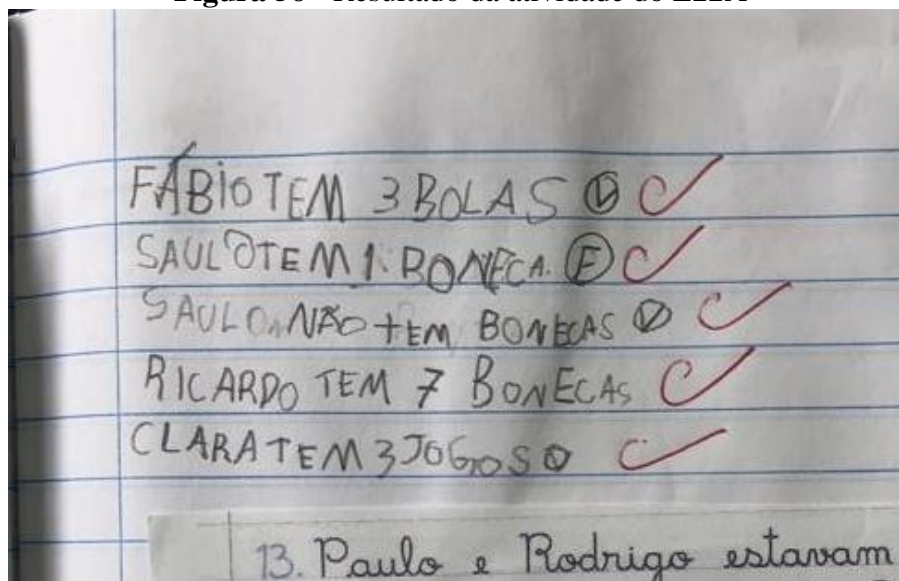 FÁBIO TEM 3 BOLAS Ⓥ
SAULO TEM 1 BONECA. Ⓕ
SAULO NÃO TEM BONECAS Ⓥ
RICARDO TEM 7 BONECAS
CLARA TEM 3 JOGOS
13. Paulo e Rodrigo estavam